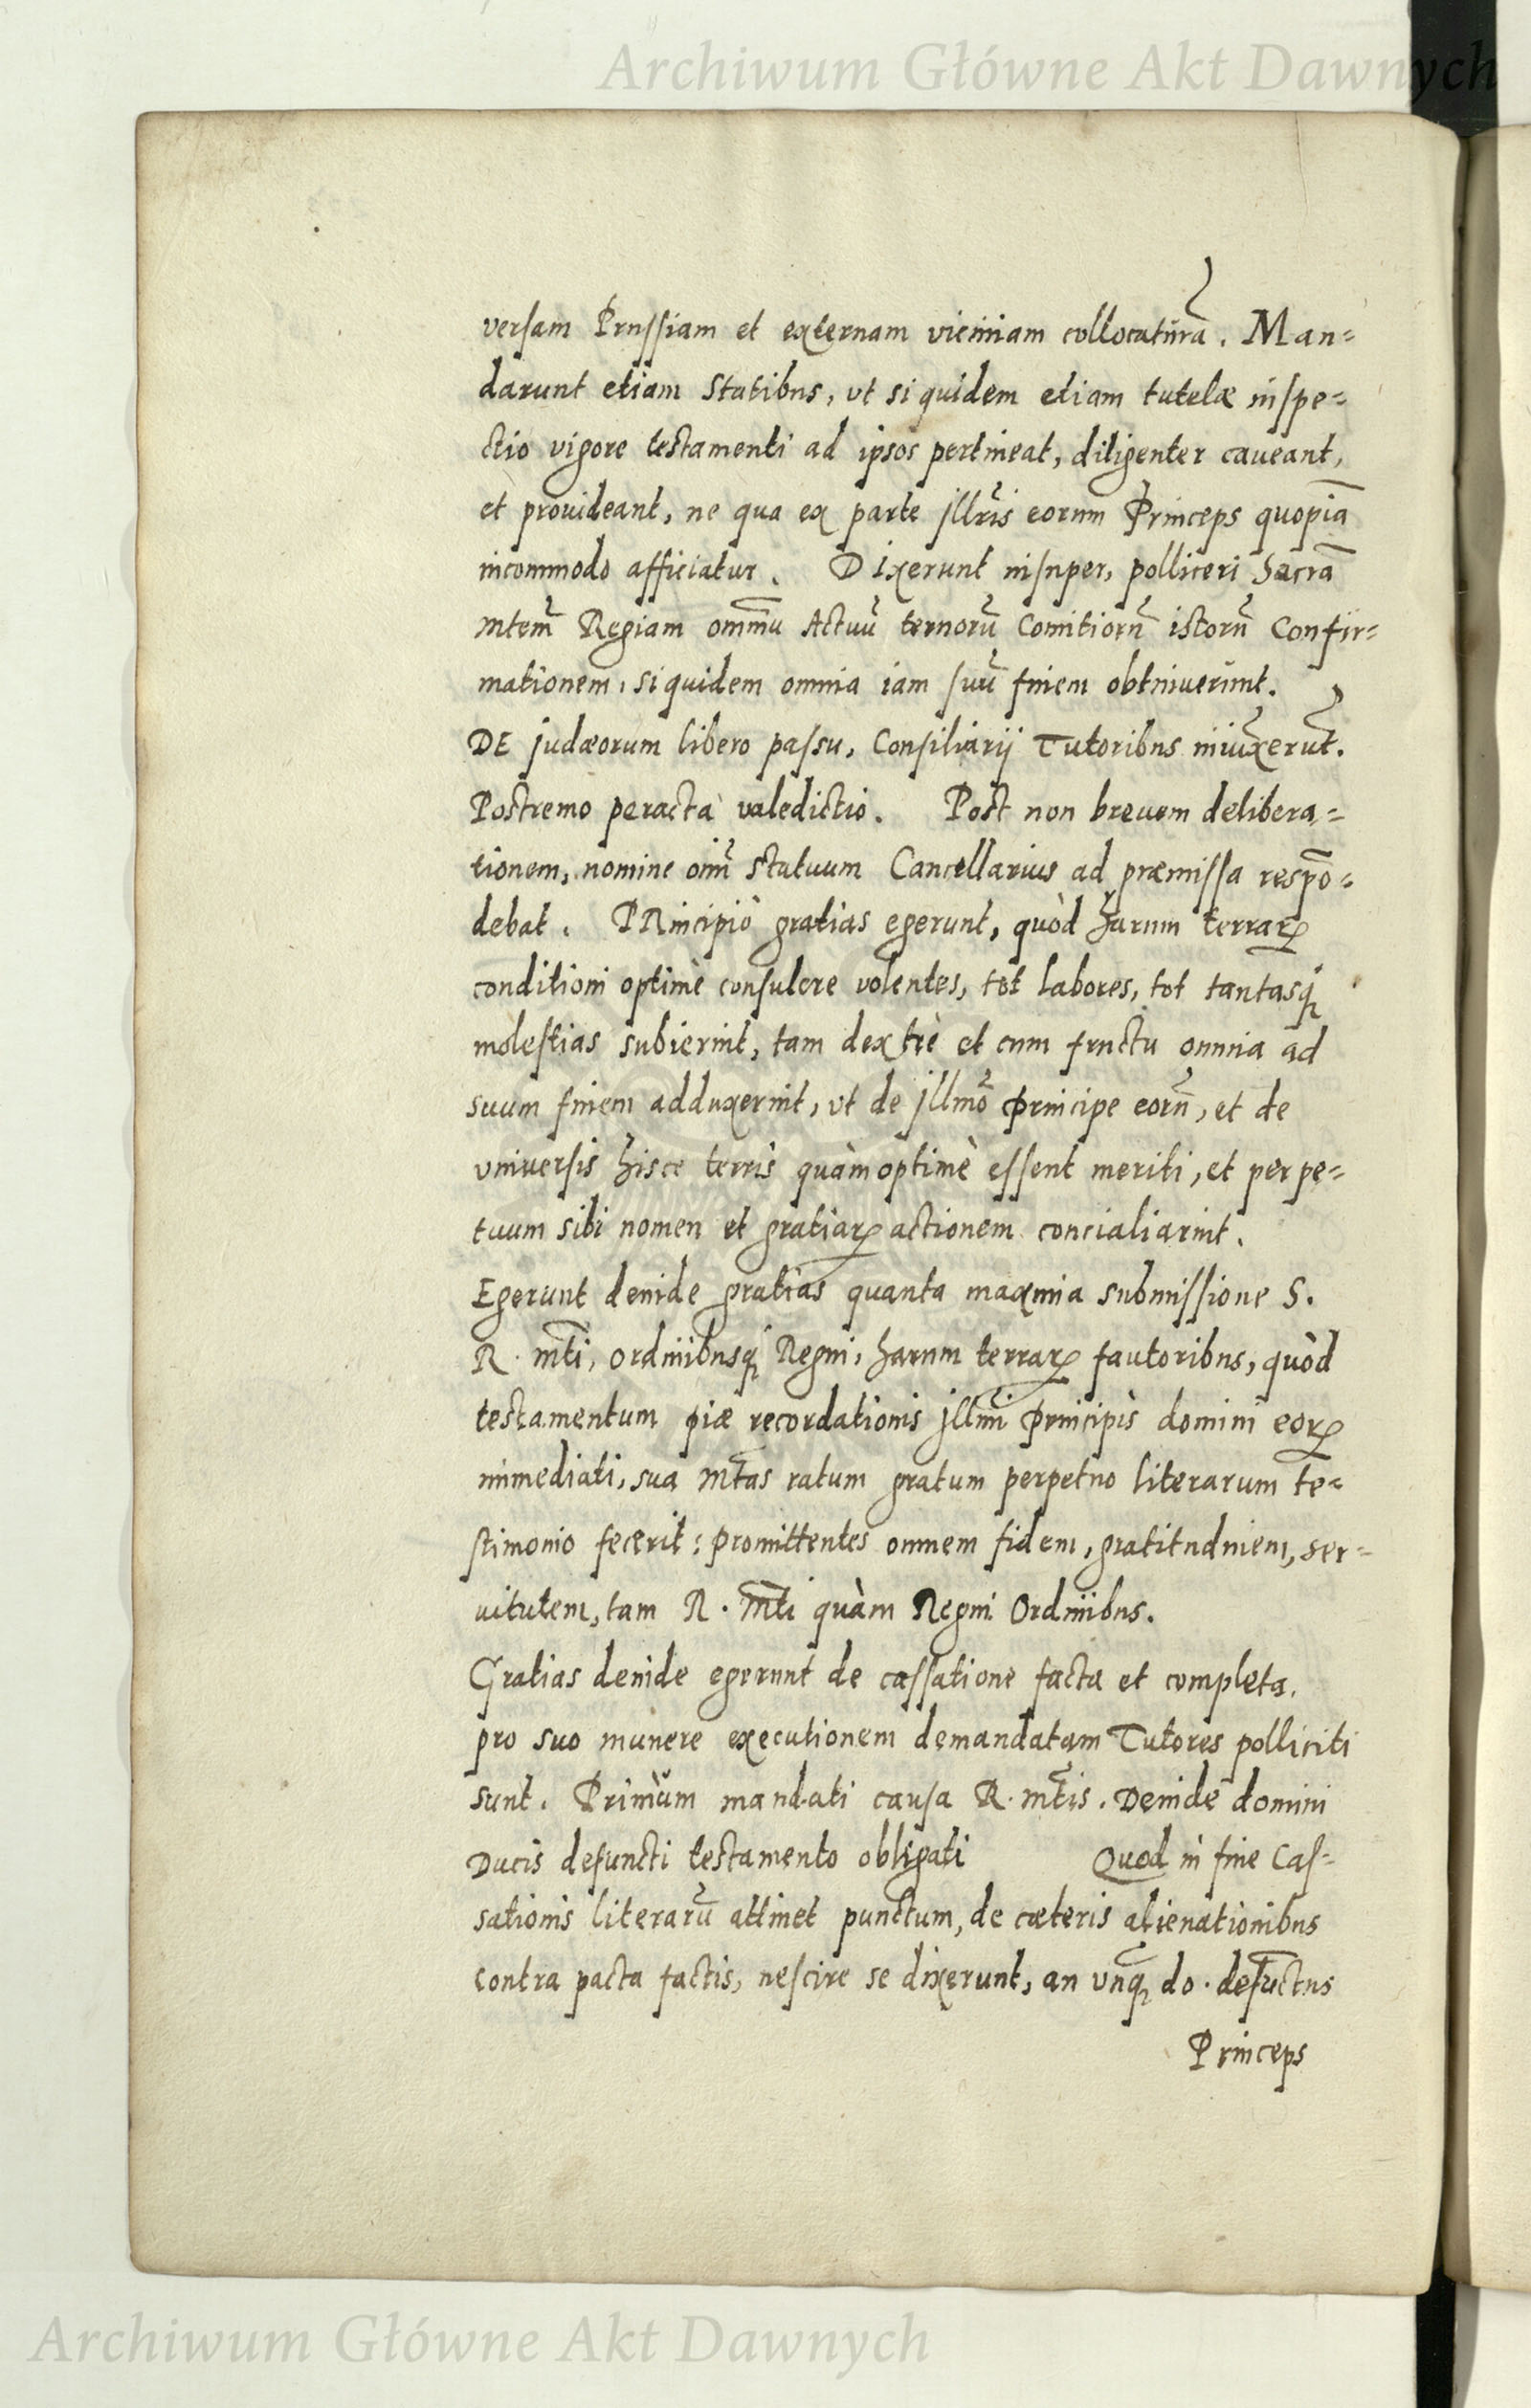 Archiwum Główne Akt Dawnych
versam Prussiam et externam viciniam collocaturā. Man=
darunt etiam Statibus, vt siquidem etiam tutelæ inspe=
ctio vigore testamenti ad ipsos pertineat, diligenter caueant,
et prouideant, ne qua ex parte jllris eorum Princeps quopiā
incommodo afficiatur. Dixerunt insuper, polliceri Sacrā
Mtem Regiam omniū Actuū ternorū Comitiorū istorū Confir=
mationem, siquidem omnia iam suū finem obtinuerunt.
DE judæorum libero passu, Consiliarij Tutoribus iniūxerūt.
Postremo peracta valedictio. Post non breuem delibera=
tionem, nomine oīm statuum Cancellarius ad præmissa respō=
debat. PRincipio gratias egerunt, quòd harum terrarꝝ
conditioni optimè consulere volentes, tot labores, tot tantasq́
molestias subierint, tam dextrè et cum fructu omnia ad
suum finem adduxerint, vt de jllmo principe eorū, et de
vniuersis hisce terris quàm optimè essent meriti, et perpe=
tuum sibi nomen et gratiarꝝ actionem concialiarint.
Egerunt deinde gratias quanta maxima submissione S.
R. mti, ordinibusq́ Regni, harum terrarꝝ fautoribus, quòd
testamentum piæ recordationis jllmi principis domini eorꝝ
immediati, sua Mtas ratum gratum perpetuo literarum te=
stimonio fecerit: promittentes omnem fidem, gratitudinem, ser=
uitutem, tam R. Mti quàm Regni Ordinibus.
Gratias deinde egerunt de cassatione facta et completa.
pro suo munere executionem demandatam Tutores polliciti
sunt. Primùm mandati causa R. mtis. Deinde domini
Ducis defuncti testamento obligati Quod in fine Cas=
sationis literarū attinet punctum, de cæteris alienationibus
contra pacta factis, nescire se dixerunt, an vnq̄ do. defūctus
Princeps
Archiwum Główne Akt Dawnych